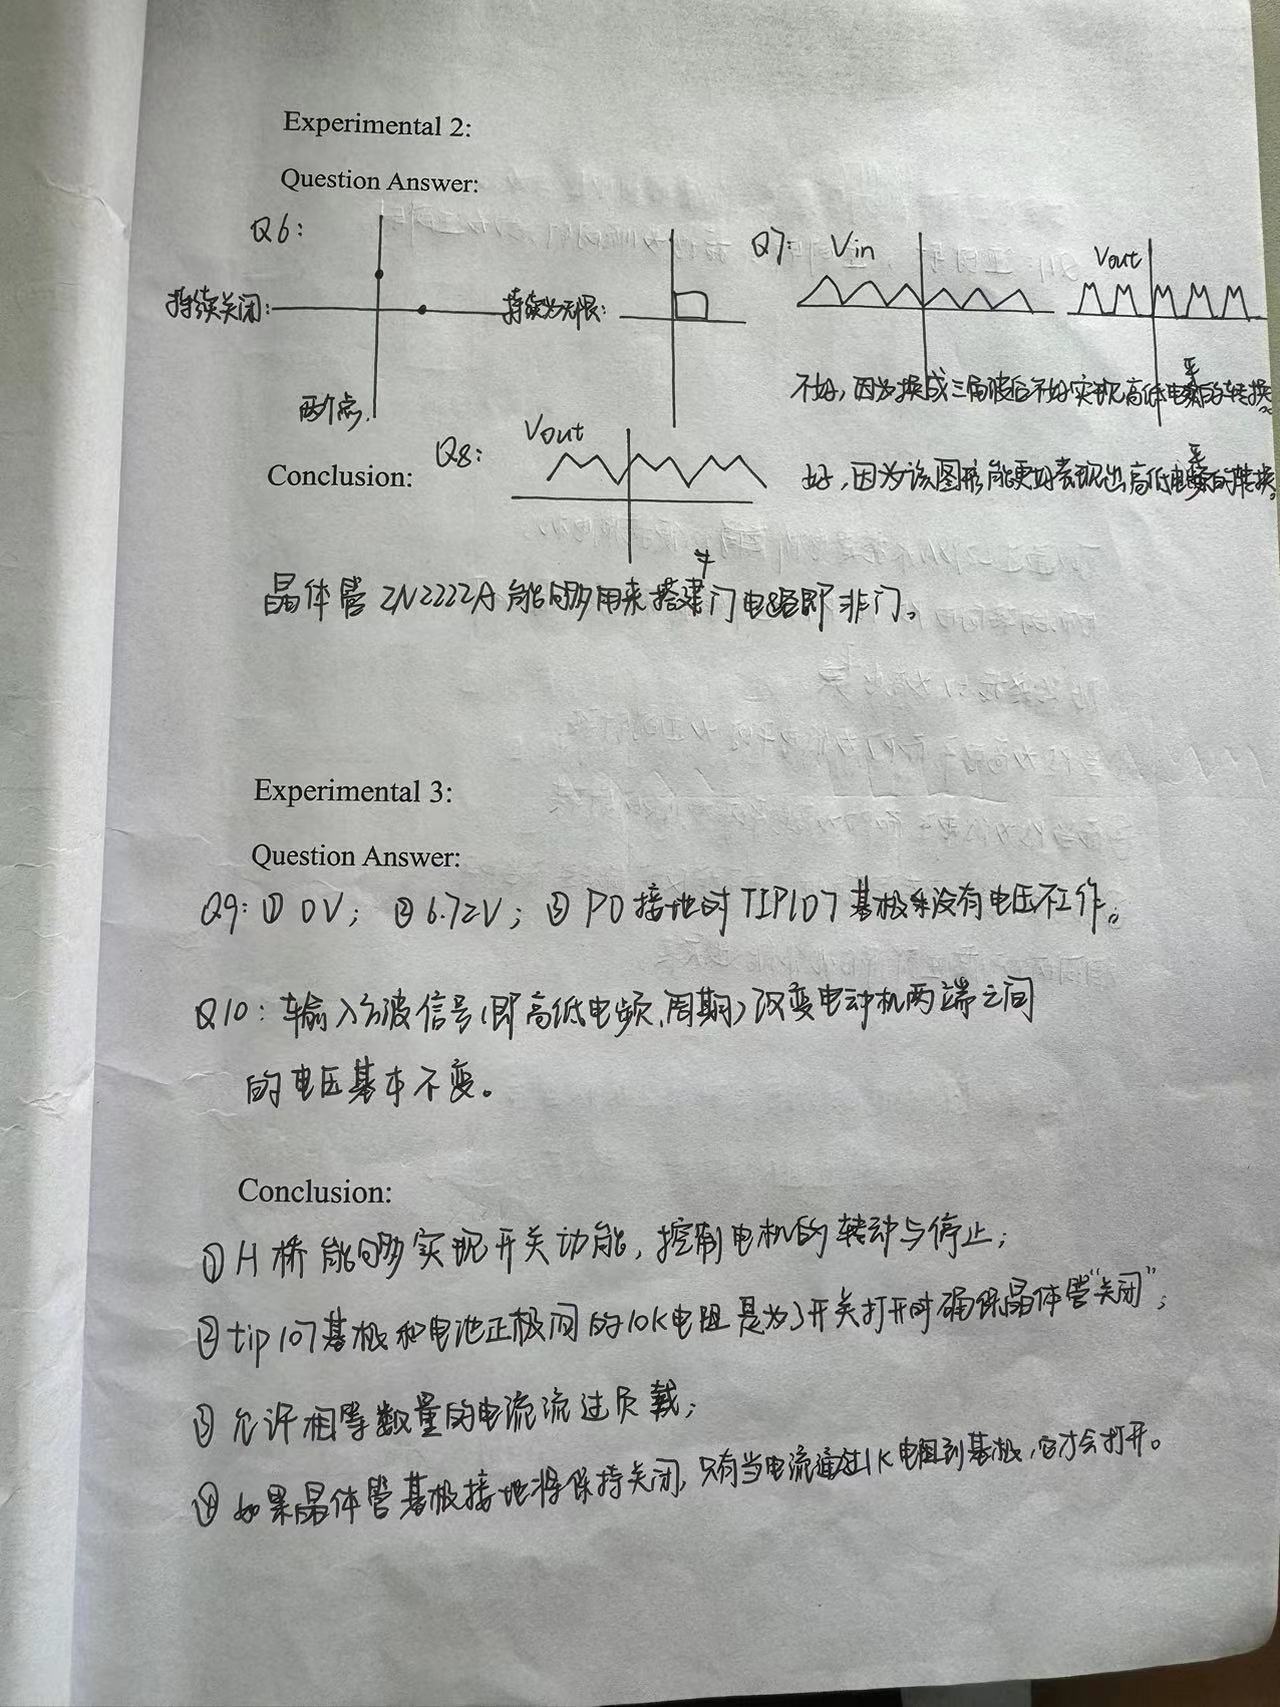 Experimental 2:
Question Answer:
Q6:
持续关闭:
两个点.
持续为无限:
Q7: Vin
Vout
不好，因为换成三角波后不好实现高低电平的转换。
Conclusion:
Q8: Vout
好，因为该图形能更好表现出高低电平的转换。
晶体管 2N2222A 能够用来搭建门电路即非门。
Experimental 3:
Question Answer:
Q9: ① 0V; ② 6.72V; ③ PD 接地时 TIP107 基极系没有电压不工作。
Q10: 输入方波信号(即高低电频、周期)改变电动机两端之间
的电压基本不变。
Conclusion:
① H 桥能够实现开关功能，控制电机的转动与停止;
② tip 107 基极和电池正极间的10K电阻是为了开关打开时确保晶体管“关闭”;
③ 允许相等数量的电流流过负载;
④ 如果晶体管基极接地将保持关闭, 只有当电流通过1K电阻到基极，它才会打开。